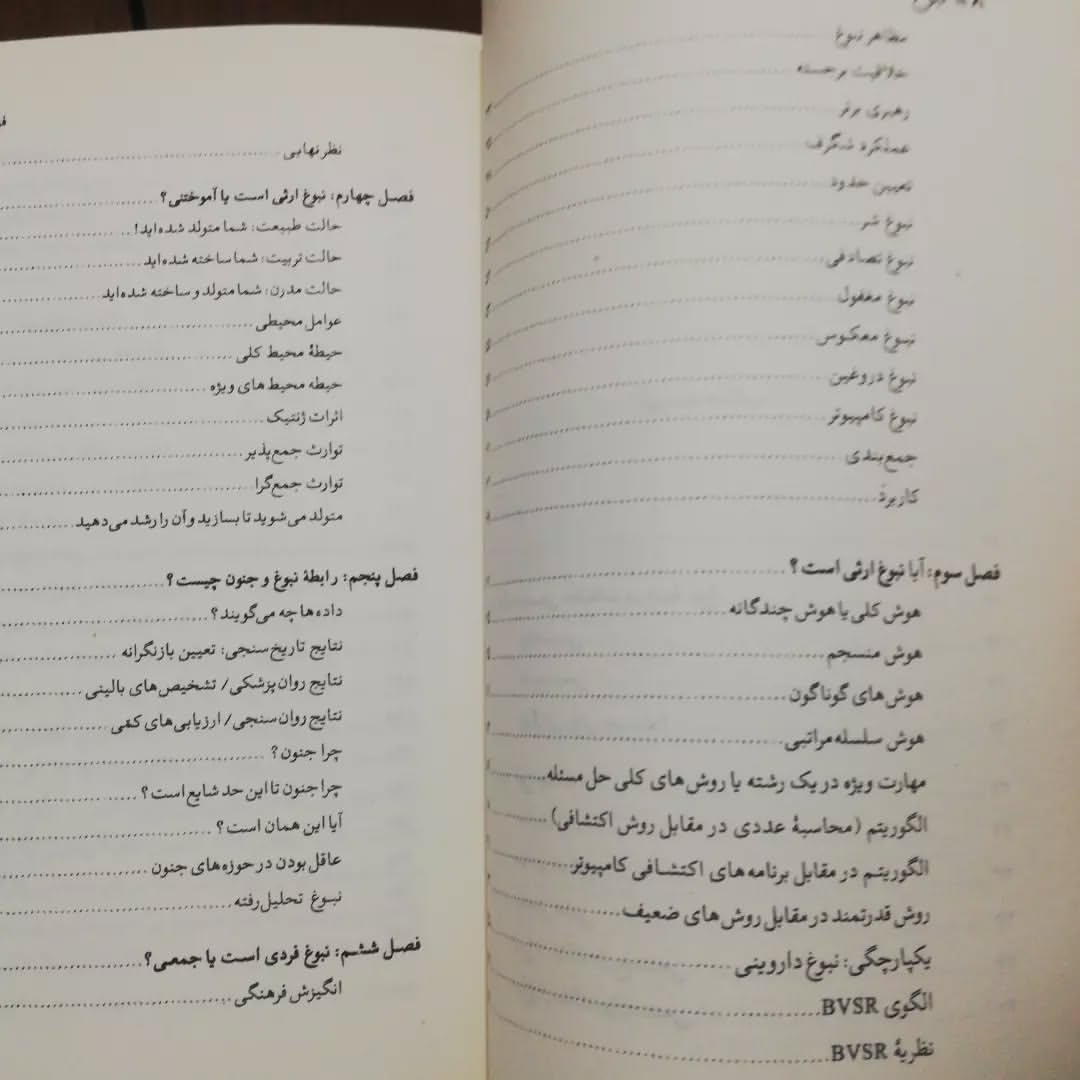 مظاهر نبوغ
خلاقیت برجسته
رهبری برتر
عملکرد شگرف
تعیین حدود
نبوغ شر
نبوغ تصادفی
نبوغ مغفول
نبوغ معکوس
نبوغ دروغین
نبوغ کامپیوتر
جمع‌بندی
کاربرد
فصل سوم: آیا نبوغ ارثی است؟
هوش کلی یا هوش چندگانه
هوش منسجم
هوش‌های گوناگون
هوش سلسله‌مراتبی
مهارت ویژه در یک رشته یا روش‌های کلی حل مسئله
الگوریتم (محاسبهٔ عددی در مقابل روش اکتشافی)
الگوریتم در مقابل برنامه‌های اکتشافی کامپیوتر
روش قدرتمند در مقابل روش‌های ضعیف
یکپارچگی: نبوغ داروینی
الگوی BVSR
نظریهٔ BVSR
نظر نهایی
فصل چهارم: نبوغ ارثی است یا آموختنی؟
حالت طبیعت: شما متولد شده‌اید!
حالت تربیت: شما ساخته شده‌اید
حالت مدرن: شما متولد و ساخته شده‌اید
عوامل محیطی
حیطهٔ محیط کلی
حیطه محیط‌های ویژه
اثرات ژنتیک
توارث جمع‌پذیر
توارث جمع‌گرا
متولد می‌شوید تا بسازید و آن را رشد می‌دهید
فصل پنجم: رابطهٔ نبوغ و جنون چیست؟
داده‌ها چه می‌گویند؟
نتایج تاریخ‌سنجی: تعیین بازنگرانه
نتایج روان‌پزشکی/ تشخیص‌های بالینی
نتایج روان‌سنجی/ ارزیابی‌های کمّی
چرا جنون؟
چرا جنون تا این حد شایع است؟
آیا این همان است؟
عاقل بودن در حوزه‌های جنون
نبوغ تحلیل‌رفته
فصل ششم: نبوغ فردی است یا جمعی؟
انگیزش فرهنگی